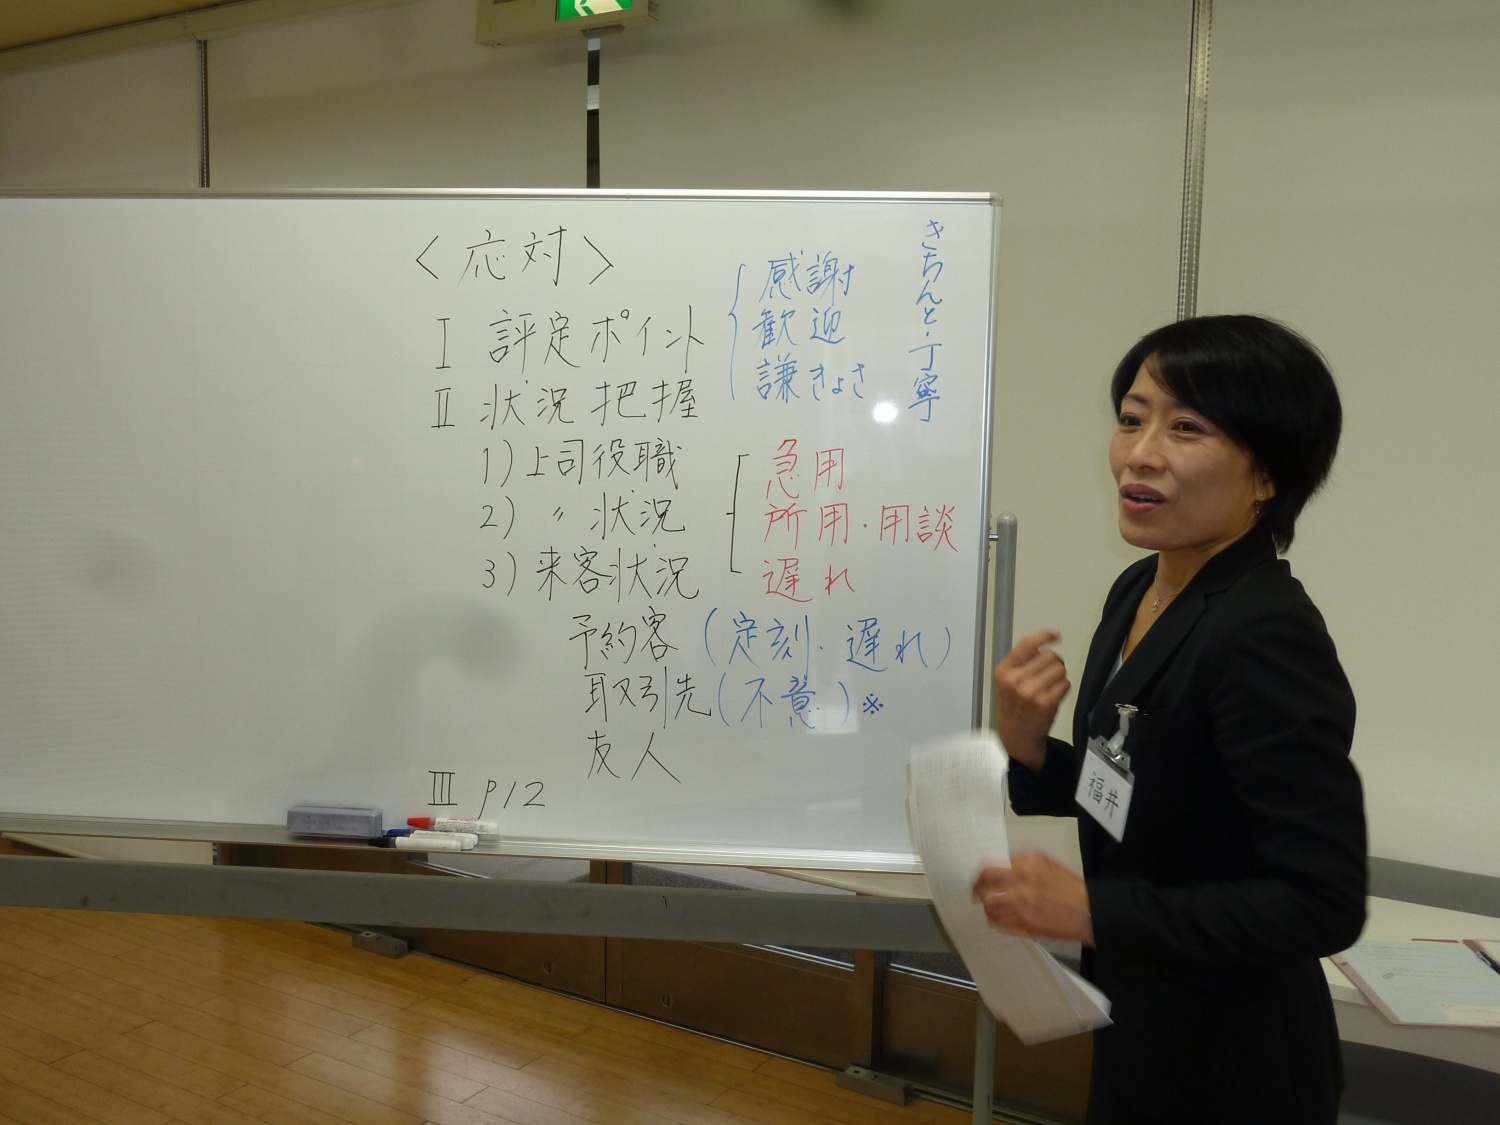 <応対>
I 評定ポイント
感謝
歓迎
謙きょさ
きちんと・丁寧
II 状況把握
1)上司役職
2) 〃 状況
3)来客状況
急用
所用・用談
遅れ
予約客(定刻・遅れ)
取引先(不意)※
友人
III P12
福井